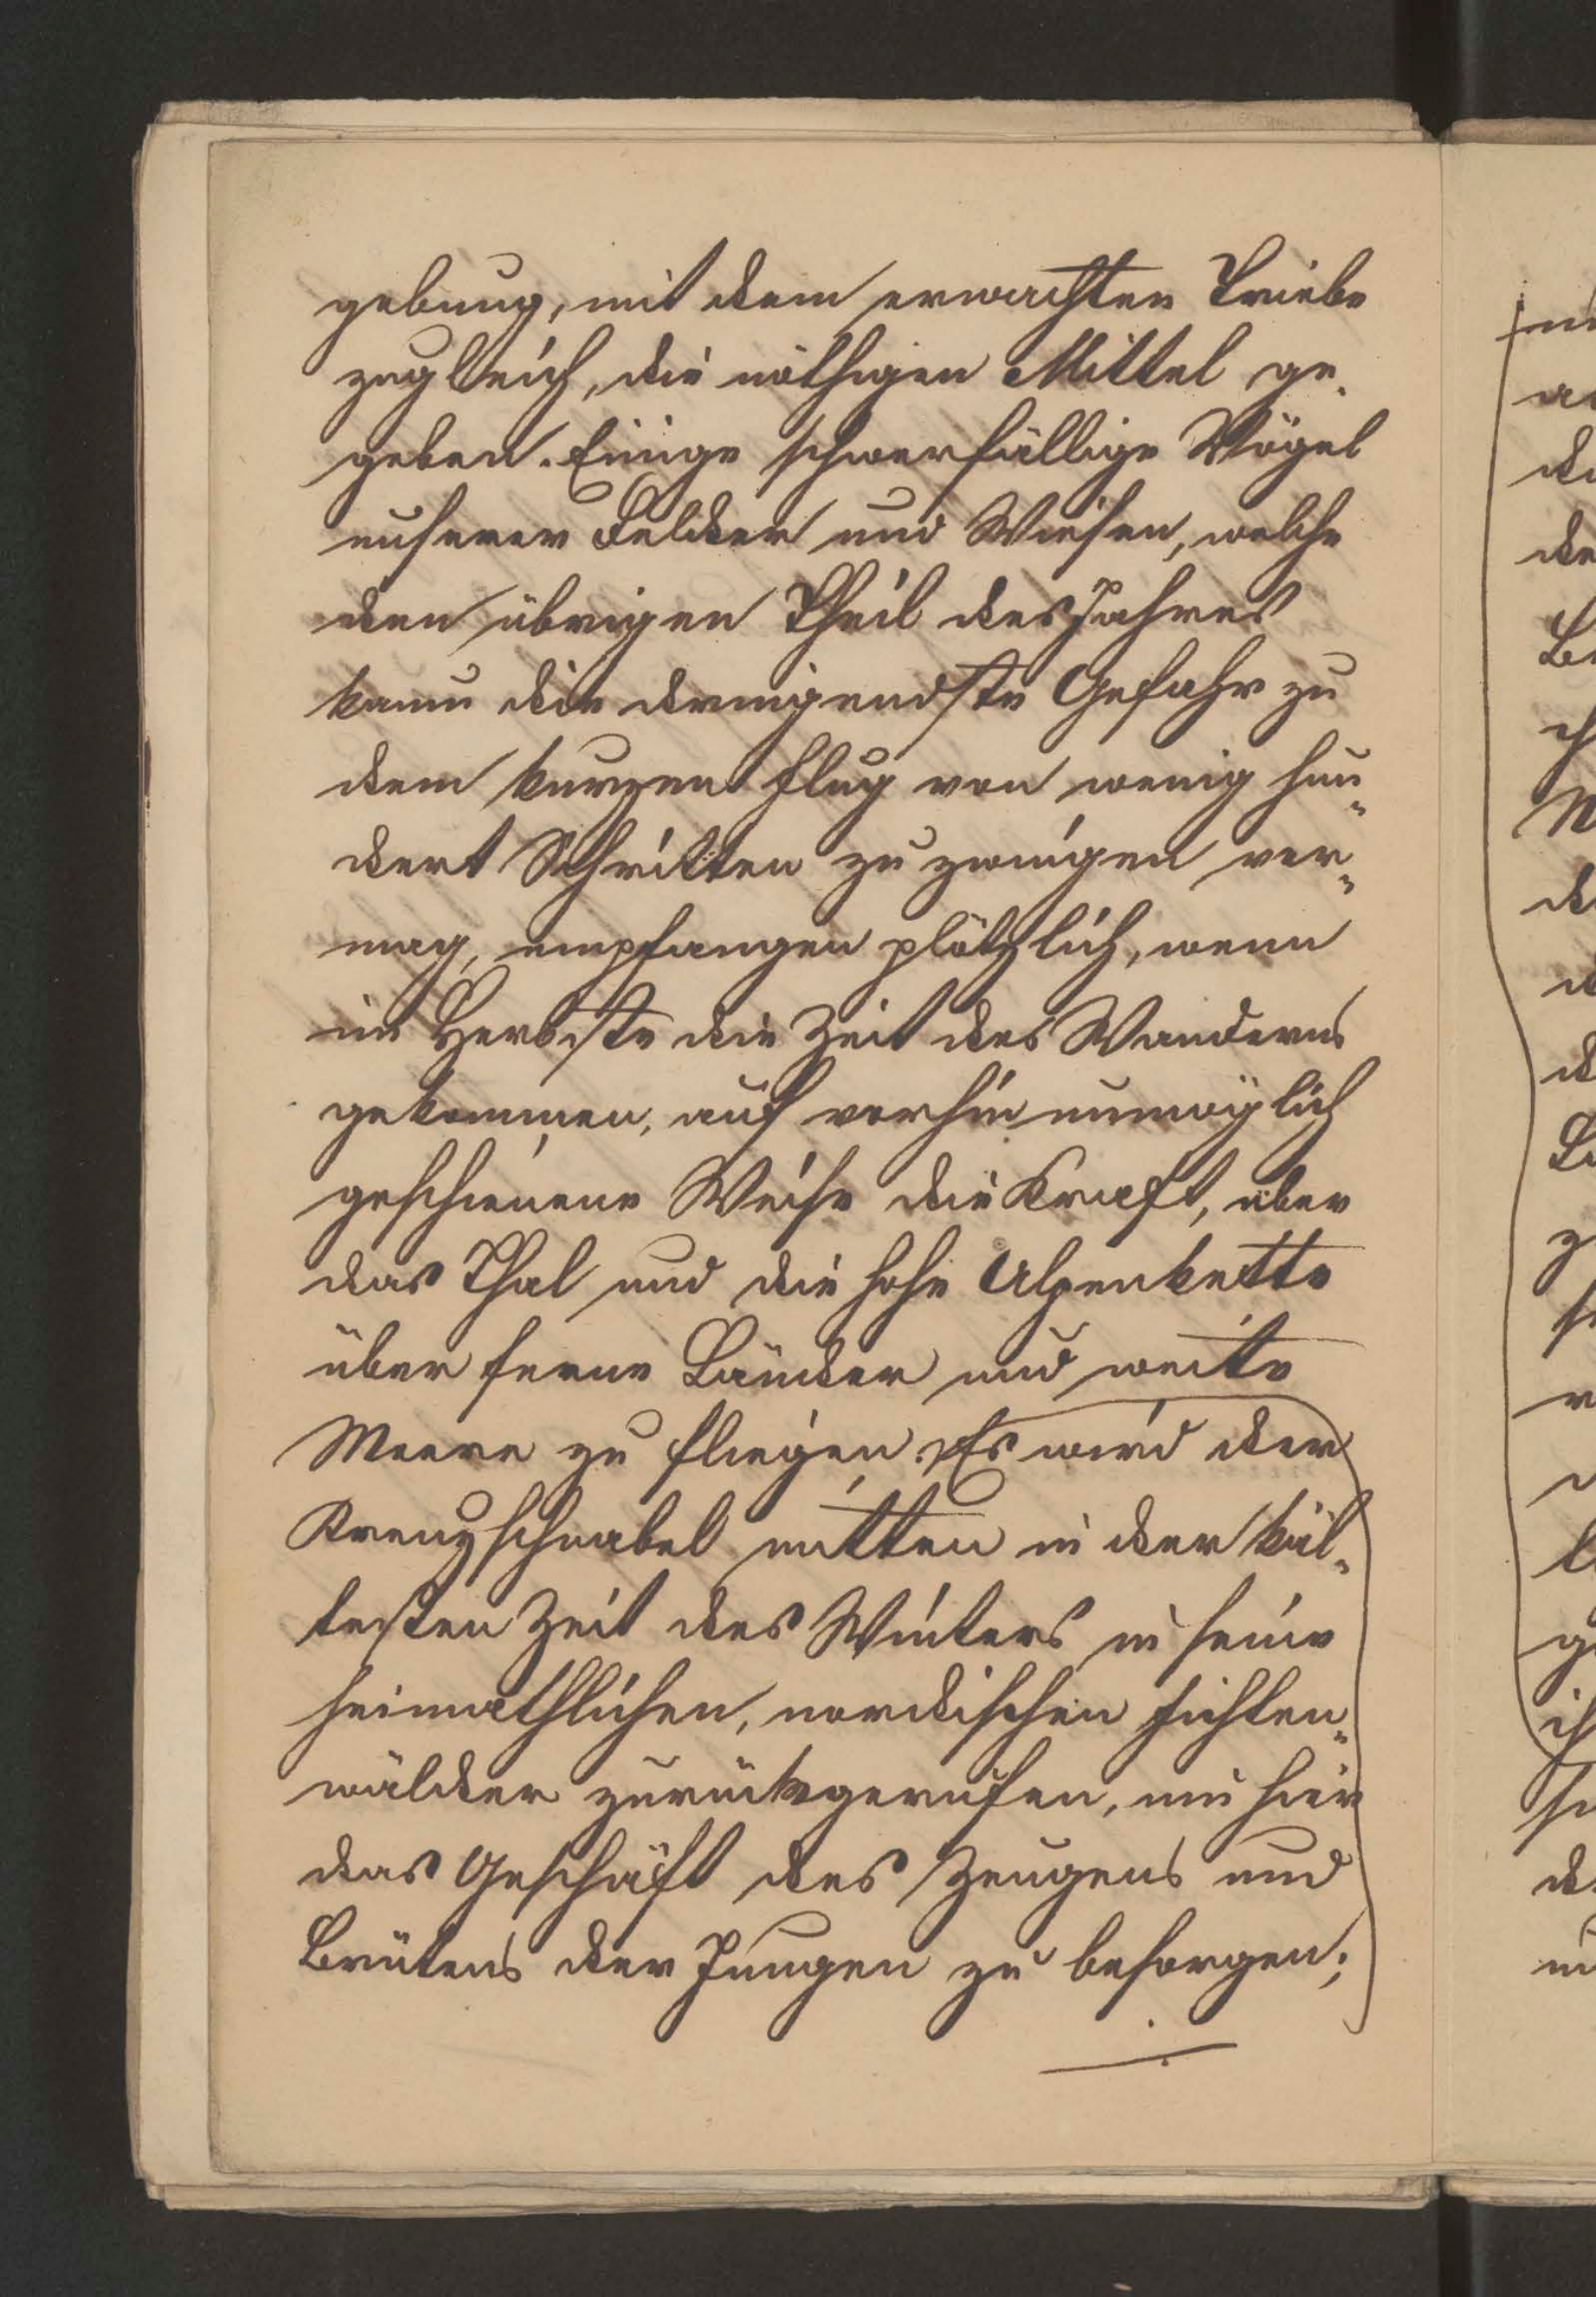 gebung, mit dem erwachten Triebe
zugleich, die nöthigen Mittel ge-
geben. Einige schwerfällige Vögel
unserer Felder und Wiesen, welche
den übrigen Theil des Jahres
kaum die dringendste Gefahr zu
dem kurzen Flug von wenig hun-
dert Schritten zu zwingen ver-
mag, empfangen plötzlich, wenn
im Herbste die Zeit des Wanderns
gekommen, auf vorhin unmöglich
geschienene Weise die Kraft, über
das Thal und die hohe Alpenkette
über ferne Länder und weite
Meere zu fliegen. Es wird der
Kreuzschnabel mitten in der käl-
testen Zeit des Winters in seine
heimathlichen, nordischen Fichten-
wälder zurückgerufen, um hier
das Geschäft des Zeugens und
Brütens der Jungen zu besorgen;